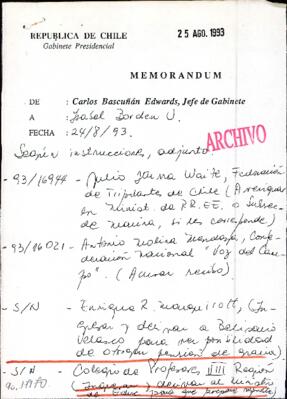 REPUBLICA DE CHILE
Gabinete Presidencial
25 AGO. 1993
MEMORANDUM
DE : Carlos Bascuñán Edwards, Jefe de Gabinete
A : Isabel Borden U.
FECHA : 24/8/93.
ARCHIVO
Según instrucciones, adjunto
- 93/16944 - Julio Waite, Federación
de Tripulantes de Chile (Averiguar
en Minist. de RR.EE. o Subsec.
de Marina, si les corresponde)
- 93/16021 - Antonio Molina Mendoza, Conf
ederación Nacional "Voz del Cam
po". (Acusar recibo)
- S/N - Enrique R. (In
gresar y derivar a Belisario
Velasco para ver posibilidad
de otorgar pensión de gracia).
- S/N - Colegio de Profesores, VIII Región
(Ingresar y derivar al Ministro
de Educ. para que prepare respuesta)